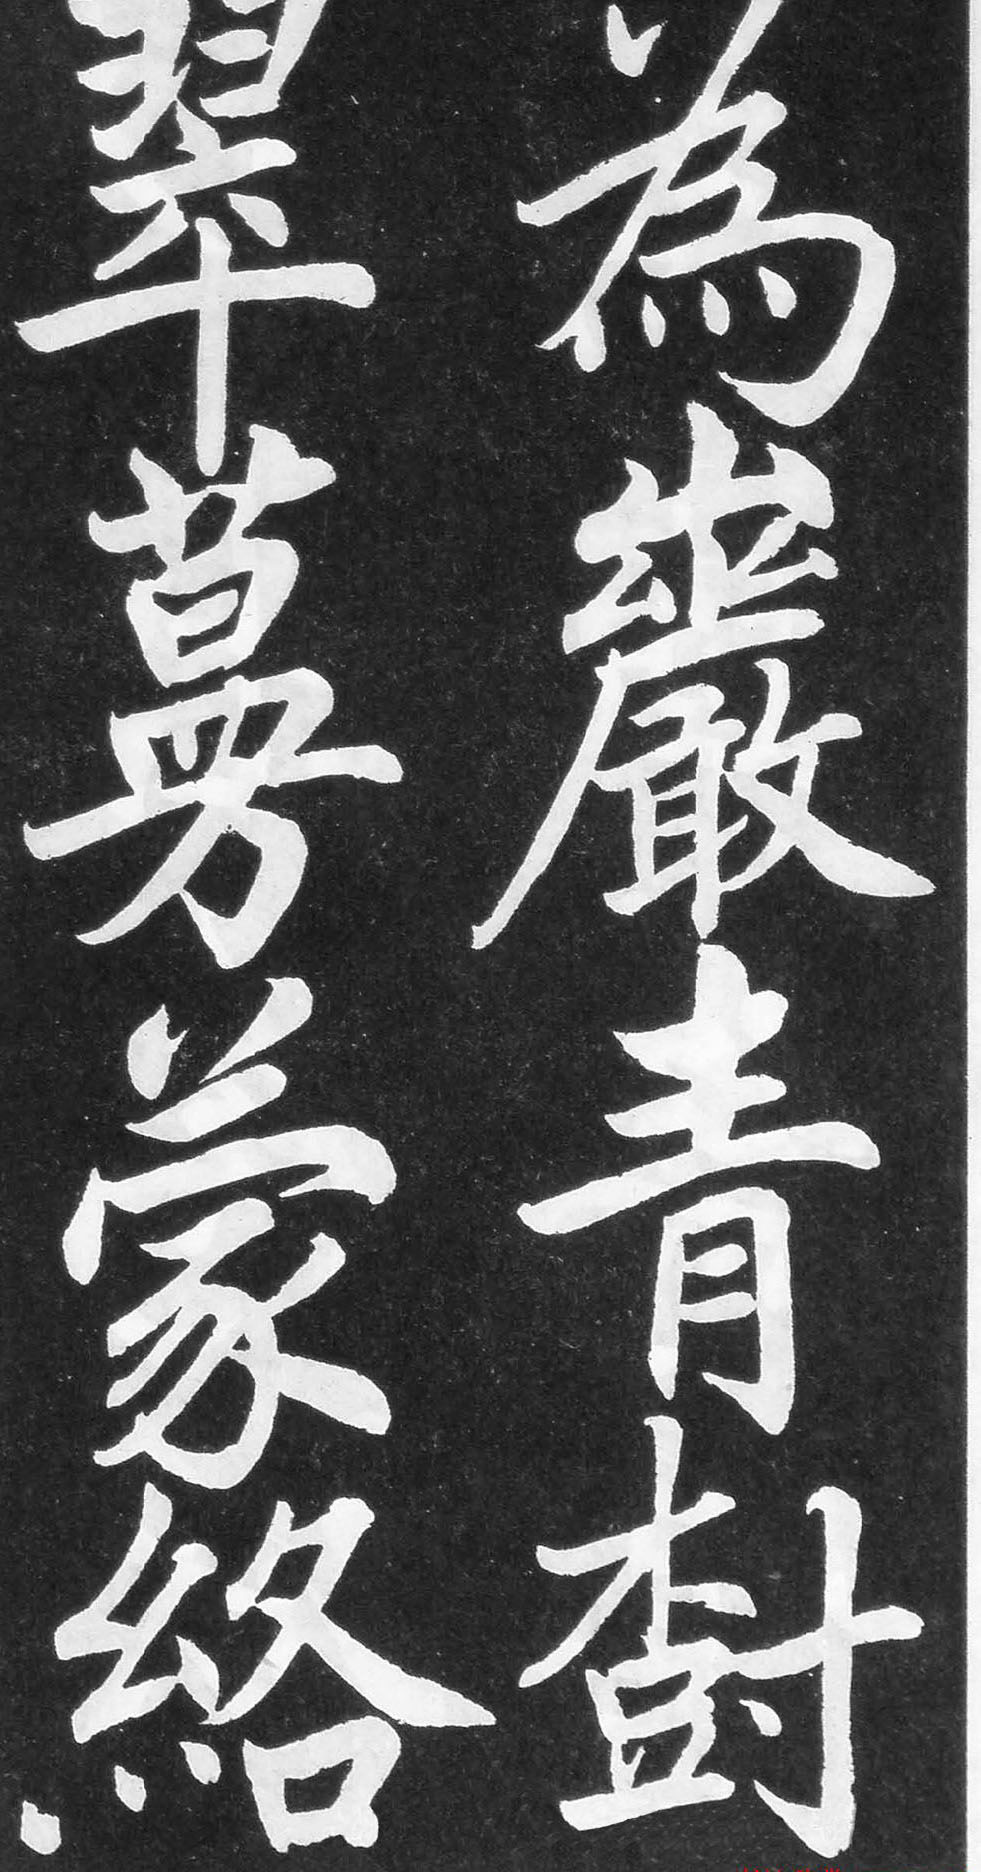 為巖青樹
翠蔓蒙絡